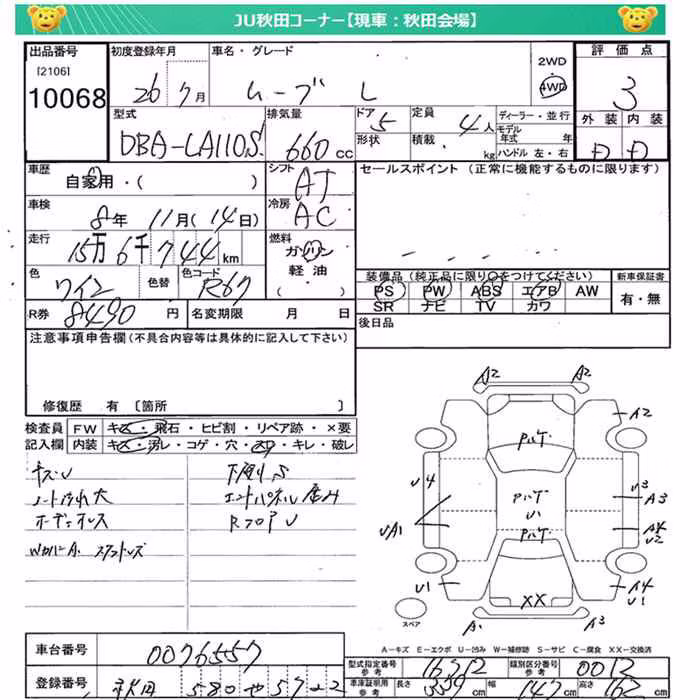 JU秋田コーナー【現車：秋田会場】
出品番号
[2106]
10068
初度登録年月
26 7月
車名・グレード
ムーブ L
2WD
4WD
評価点
3
外装 内装
D D
型式
DBA-LA110S
排気量
660 cc
ドア
5
形状
定員
4人
積載
kg
ディーラー・並行
モデル年式 年
ハンドル 左・右
車歴
自家用・( )
シフト
AT
セールスポイント (正常に機能するものに限ります)
車検
8年 11月 (14日)
冷房
AC
走行
15万6千744km
燃料
ガソリン
軽油
( )
色
ワイン
色替
色コード
R67
装備品 (純正品に限り○をつけてください)
PS PW ABS エアB AW
SR ナビ TV カワ
新車保証書
有・無
R券 8490 円
名変期限 月 日
後日品
注意事項申告欄 (不具合内容等は具体的に記入して下さい)
修復歴 有 [箇所 ]
検査員記入欄
FW キズ・飛石・ヒビ割・リペア跡・×要
内装 キズ・汚レ・コゲ・穴・スレ・キレ・破レ
キズU
シート汚れ大
下廻りS
エンドパネル
RフロアU
A2 A2
A2
PルT
U4
PルT
U1
PルT
U3
A3
UA1
A4
U2
U1
A4
U1
XX
A1
A3
スペア
A－キズ E－エクボ U－凹み W－補修跡 S－サビ C－腐食 XX－交換済
車台番号
0076557
登録番号
秋田 580 や 57-22
型式指定番号 参考
16712
類別区分番号 参考
0012
車庫証明用 参考
長さ 339cm
幅 147cm
高さ 162cm